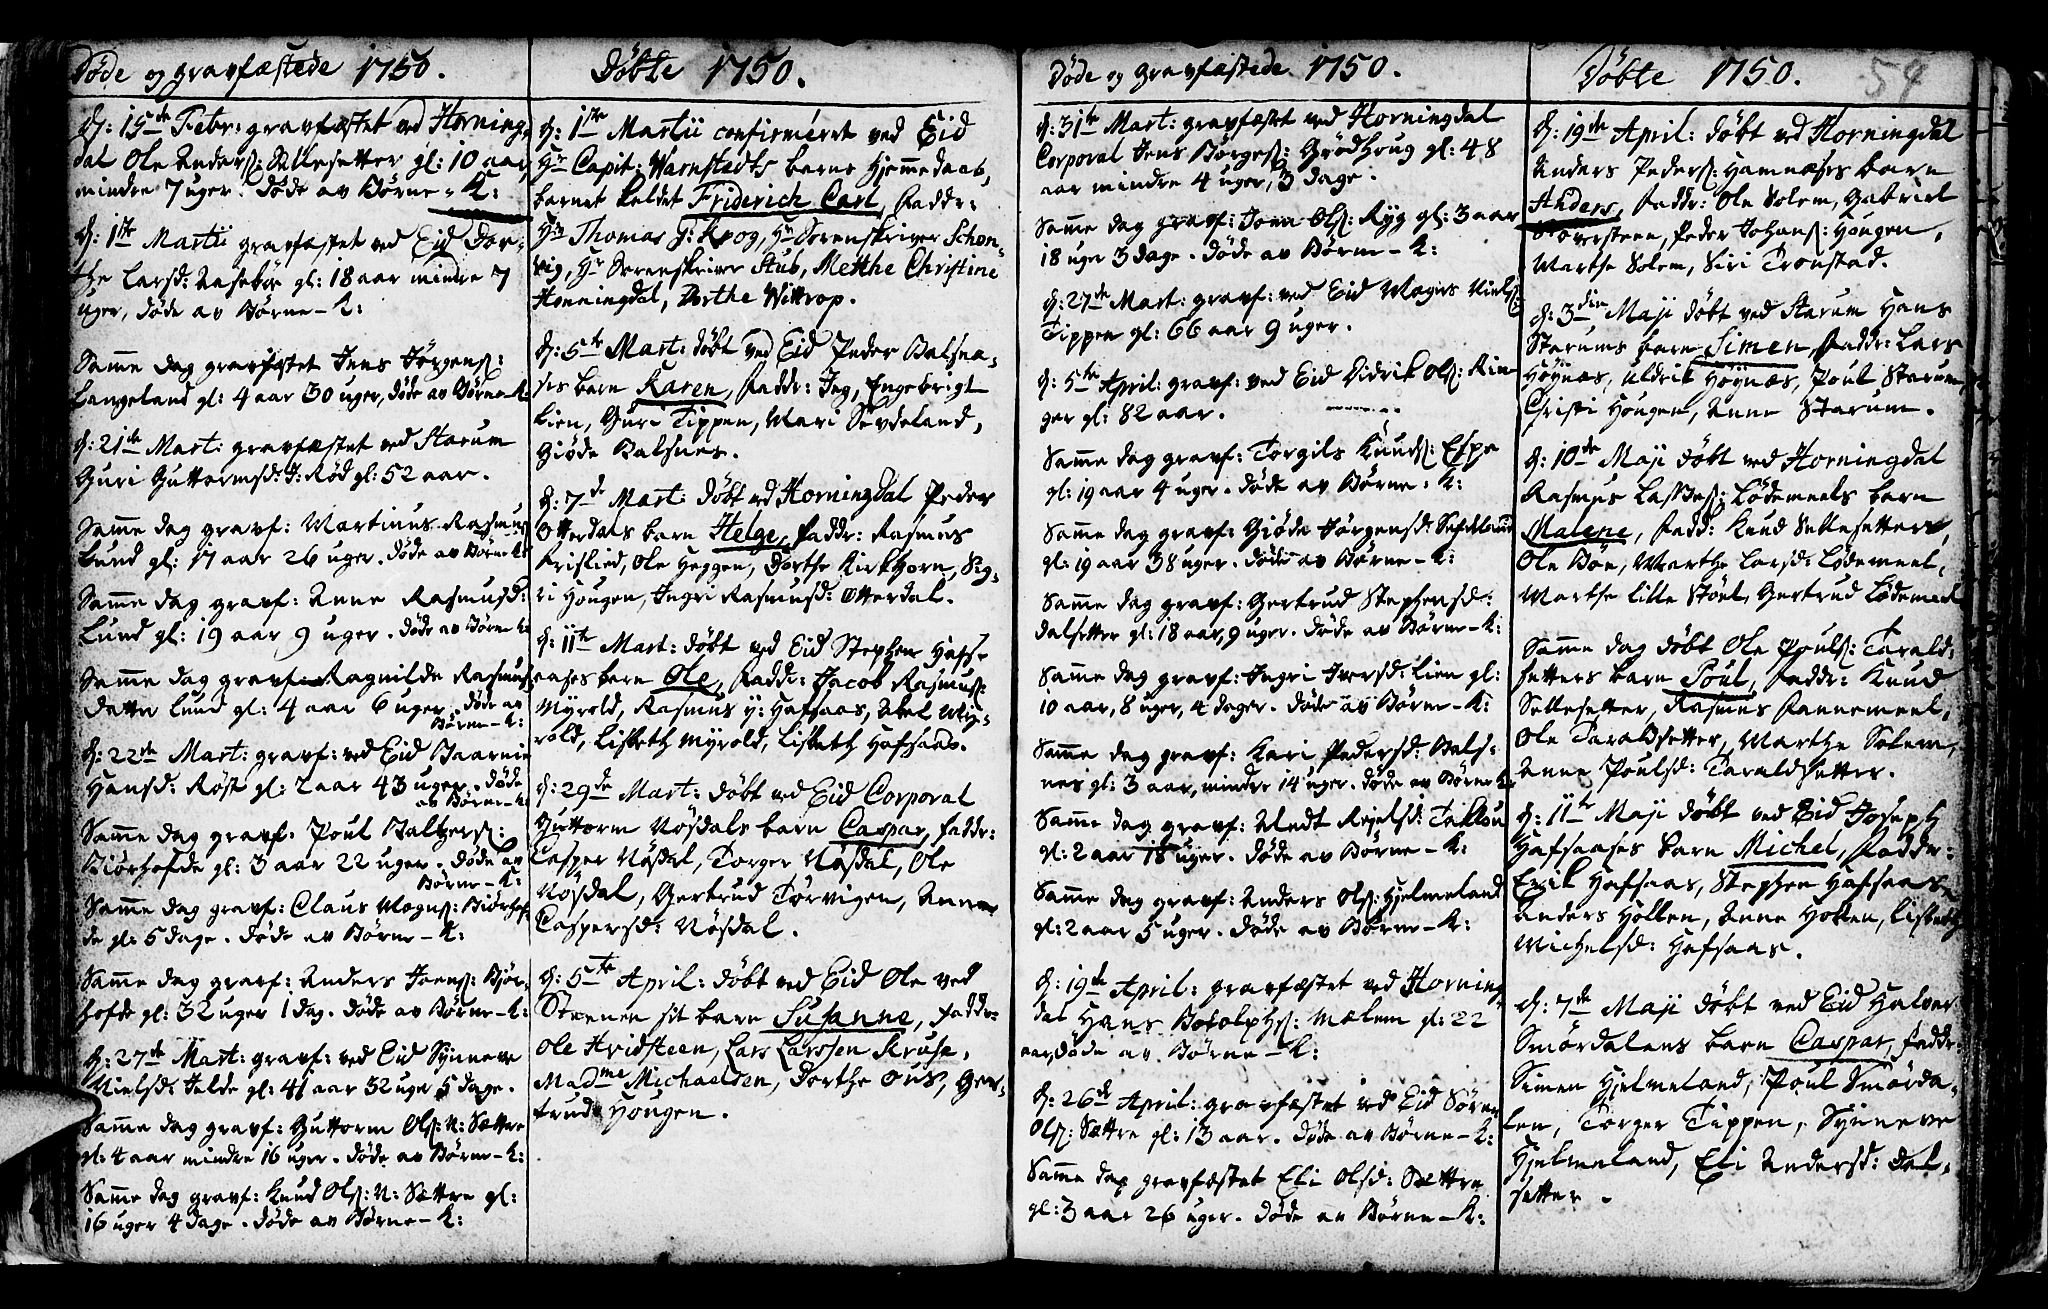 Døde og gravfæstede 1750.
d: 15de Febr: gravfæstet ved Horning-
dal Ole Anders: Sættesetter gl: 10 aar
mindre 7 uger. døde av Børne-K:
d: 1ste Martii gravfæstet ved Eid Dor-
the Larsd: Aasebøe gl: 18 aar mindre 7
uger, døde av Børne-K:
Samme dag gravfæstet Jens Jørgens:
Langeland gl: 4 aar 30 uger, døde av Børne-K:
d: 21de Mart: gravfæstet ved Starum
Guri Guttormsd: I: Rød gl: 52 aar.
Samme dag gravf: Martinus Rasmus
Lund gl: 17 aar 26 uger. døde av Børne-K:
Samme dag gravf: Anne Rasmusd:
Lund gl: 19 aar 9 uger. døde av Børne-K:
Samme dag gravf: Ragnilde Rasmus
datter Lund gl: 4 aar 6 uger. døde av
Børne-K:
d: 22de Mart: gravf: ved Eid Baarnie
Hansd: Røst gl: 2 aar 43 uger. døde
av Børne-K:
Samme dag gravf. Poul Baltzers:
Biørhofde gl: 3 aar 22 uger. døde av
Børne-K:
Samme dag gravf: Claus Mogns: Biørhof-
de gl: 5 dage. døde av Børne-K:
Samme dag gravf: Anders Joens: Bjør-
hofde gl: 32 uger 1 dag. døde av Børne-K:
d: 27de Mart: gravf: ved Eid Synneve
Nielsd: Jelde gl: 41 aar 32 uger 5 dage.
Samme dag gravf: Guttorm Ols: N: Sættre
gl: 4 aar mindre 16 uger. døde av Børne-K:
Samme dag gravf: Knud Ols: N: Sættre gl:
16 uger 4 dage. døde av Børne-K:
Døbte 1750.
d: 1ste Martii confirmeret ved Eid
Hr Capit: Warnstedts barns hjemmedaab,
barnet kaldet Friderich Carl, Faddr:
Hr Thomas J: Krog, Hr Sorenskriver Schon-
vig, Hr Sorenskriver Stub, Metthe Christine
Honningdal, Dorthe Wittrop.
d: 5te Mart: døbt ved Eid Peder Balsna-
ses barn Karen, Faddr: Jeg, Engebrigt
Lien, Guri Tippen, Mari Sevdeland,
Giøde Balsnes.
d: 7de Mart: døbt ved Horningdal Peder
Otterdals barn Helge, Faddr: Rasmus
Krislied, Ole Heggen, Dorthe Kirkhorn, Sig-
ri Hougen, Ingri Rasmusd: Otterdal.
d: 11te Mart: døbt ved Eid Stephen Hafs-
aases barn Ole, Faddr: Jacob Rasmus:
Myrold, Rasmus y: Hafsaas, Abel Myr-
rold, Lisbeth Myrold, Lisbeth Hafsaas.
d: 29de Mart: døbt ved Eid Corporal
Guttorm Nøsdals barn Caspar, faddr:
Casper Nøsdal, Torger Nøsdal, Ole
Nøsdal, Gertrud Torvigen, Anne
Caspersd: Nøsdal.
d: 5te April: døbt ved Eid Ole ved
Steenen sit barn Susanne, faddr:
Ole Hvidsteen, Lars Larssen Kruse,
Madme Michaelsen, Dorthe Ous, Ger-
trud Hougen.
Døde og gravfæstede 1750.
d: 31te Mart: gravfæstet ved Horningdal
Corporal Jens Børges: Grødhoug gl: 48
aar mindre 4 uger, 3 dage.
Samme dag gravf: Joen Ols: Ryg gl: 3 aar
18 uger 3 dage. døde av Børne-K:
d: 27de Mart: gravf: ved Eid Mogns Niels:
Tippen gl: 66 aar 9 uger.
d: 5te April: gravf: ved Eid Didrik Ols: Rin-
ger gl: 82 aar.
Samme dag gravf: Torgils Knuds: Espe
gl: 19 aar 4 uger. døde av Børne-K:
Samme dag gravf: Giøde Jørgensd: Sefdeland
gl: 19 aar 38 uger. døde av Børne-K:
Samme dag gravf: Gertrud Stephensd:
Dalsetter gl: 18 aar, 9 uger. døde av Børne-K:
Samme dag gravf: Ingri Iversd: Lien gl:
10 aar, 8 uger, 4 dager. døde av Børne-K:
Samme dag gravf: Kari Pedersd: Bals-
nes gl: 3 aar, mindre 14 uger. døde av Børne-K:
Samme dag gravf: Aledt
gl: 2 aar 18 uger. døde av Børne-K:
Samme dag gravf: Anders Ols: Hjelmeland
gl: 2 aar 5 uger. døde av Børne-K:
d: 19de April: gravfæstet ved Horning-
dal Hans Botolphs: Mælem gl: 22
aar, døde av Børne-K:
d: 26de April: gravfæstet ved Eid Søren
Ols: Sættre gl: 13 aar. døde av Børne-K:
Samme dag gravfæstet Eli Olsd: Sættre
gl: 3 aar 26 uger. døde av Børne-K:
Døbte 1750. 54
d: 19de April: døbt ved Horningdal
Anders Peders: Hamnæses barn
Anders, Faddr: Ole Solem, Gabriel
Stoversteen, Peder Johans: Hougen,
Marthe Solem, Siri Tronstad.
d: 3die Maji døbt ved Starum Hans
Starums barn Simen, Faddr: Lars
Høynæs, Uldrik Høynæs, Poul Starum
Christi Hougen, Anne Starum.
d: 10de Maji døbt ved Horningdal
Rasmus Lasses: Lødemeels barn
Malene, Fadd: Knud Settesetter,
Ole Bøe, Marthe Larsd: Lødemeel,
Marthe lille Støel, Gertrud Lødemeel
Samme dag døbt Ole Pouls: Tarald-
setters barn Poul, Faddr: Knud
Settesetter, Rasmus Fannemeel,
Ole Taraldsetter, Marthe Solem,
Anne Poulsd: Taraldsetter.
d: 11te Maji døbt ved Eid Joseph
Hafsaases barn Michel, Faddr:
Erik Hafsaas, Stephen Hafsaas
Anders Holten, Anne Holten, Lisbeth
Michelsd: Hafsaas.
d: 7de Maji døbt ved Eid Halver
Smørdalens barn Caspar, faddr:
Simen Hjelmeland, Poul Smørda-
len, Torger Tippen, Synneve
Hjelmeland, Eli Andersd: Dal-
setter.